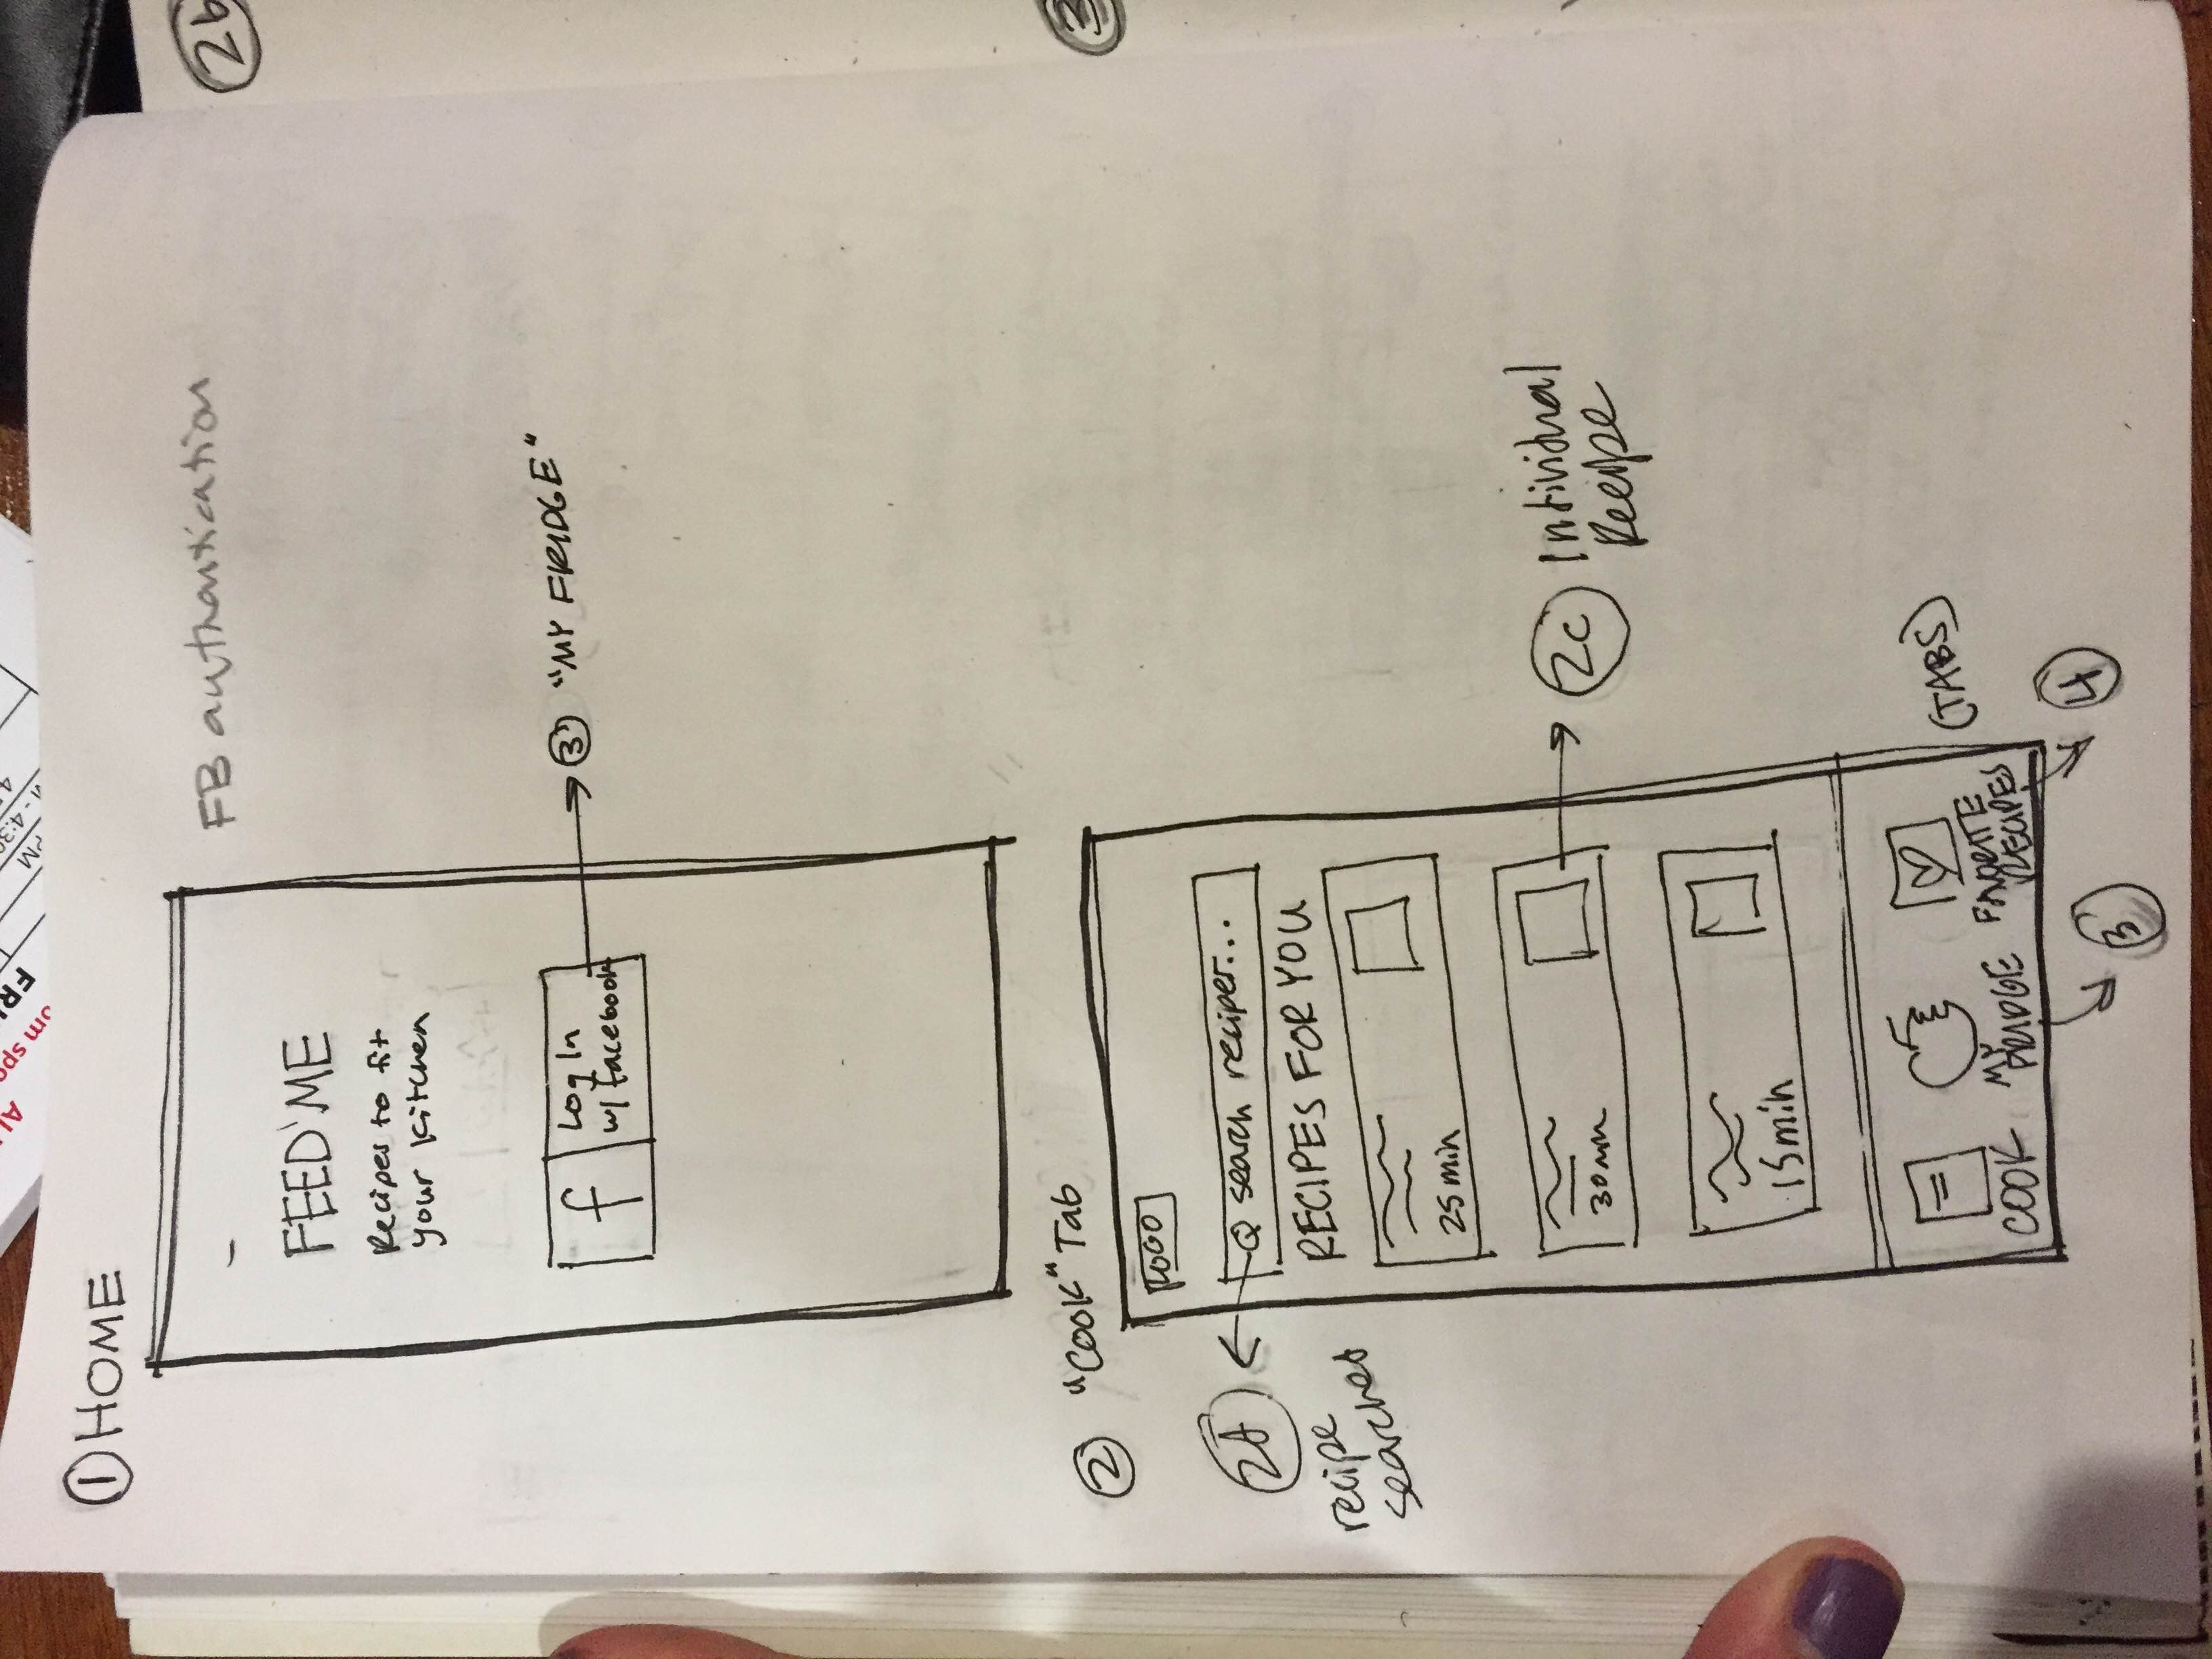 ① HOME
FB authentication
FEED ME
Recipes to fit
your kitchen
f
Log In
w/ Facebook
③ "MY FRIDGE"
② "COOK" Tab
LOGO
search recipes...
recipe
searches
RECIPES FOR YOU
25 min
30 min
2c
Individual
Recipe
15 min
COOK
MY
FRIDGE
FAVORITE
RECIPES
(TABS)
3
4
2b
3
FRI
PM